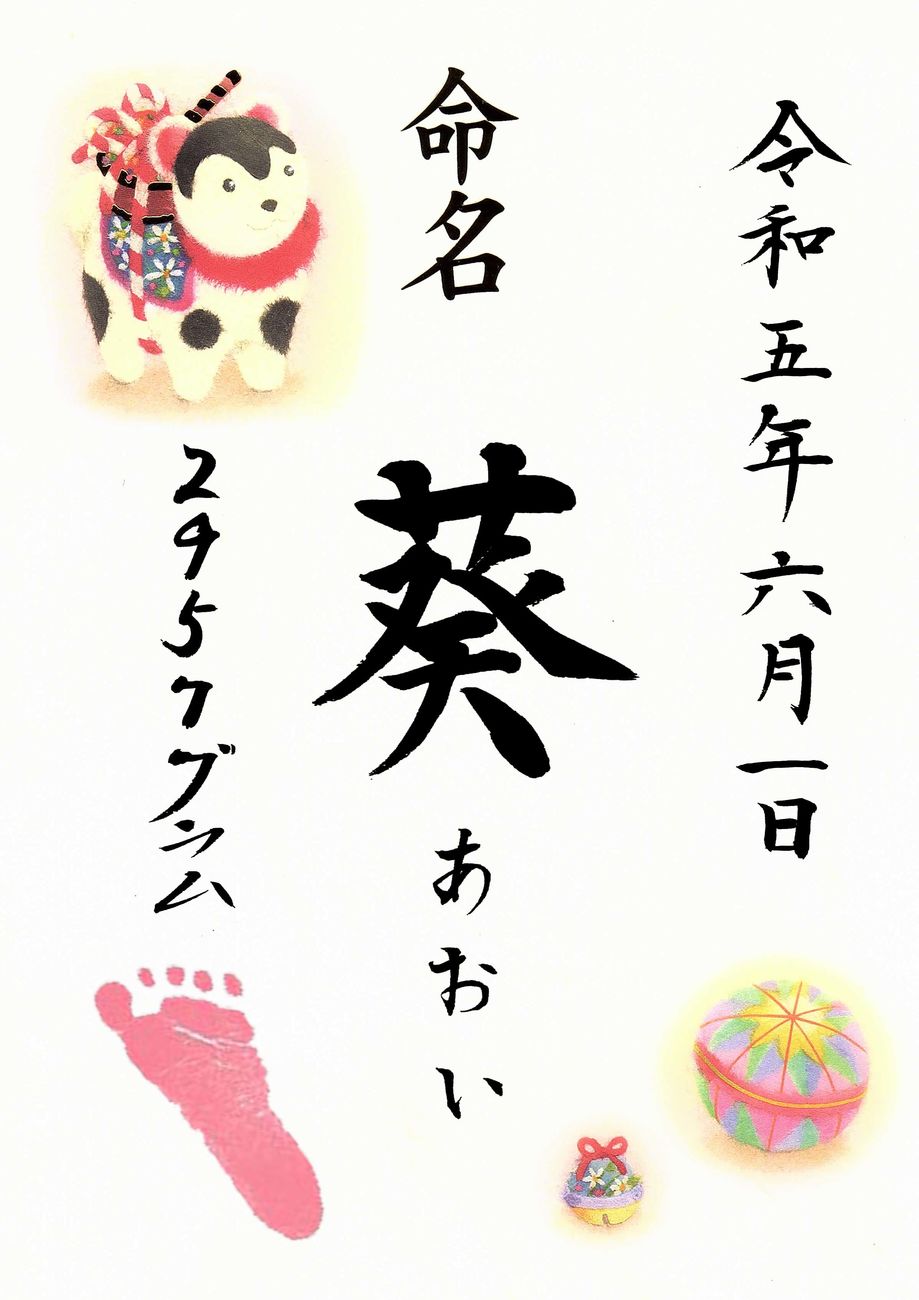 令和五年六月一日
命名
葵
あおい
2957グラム